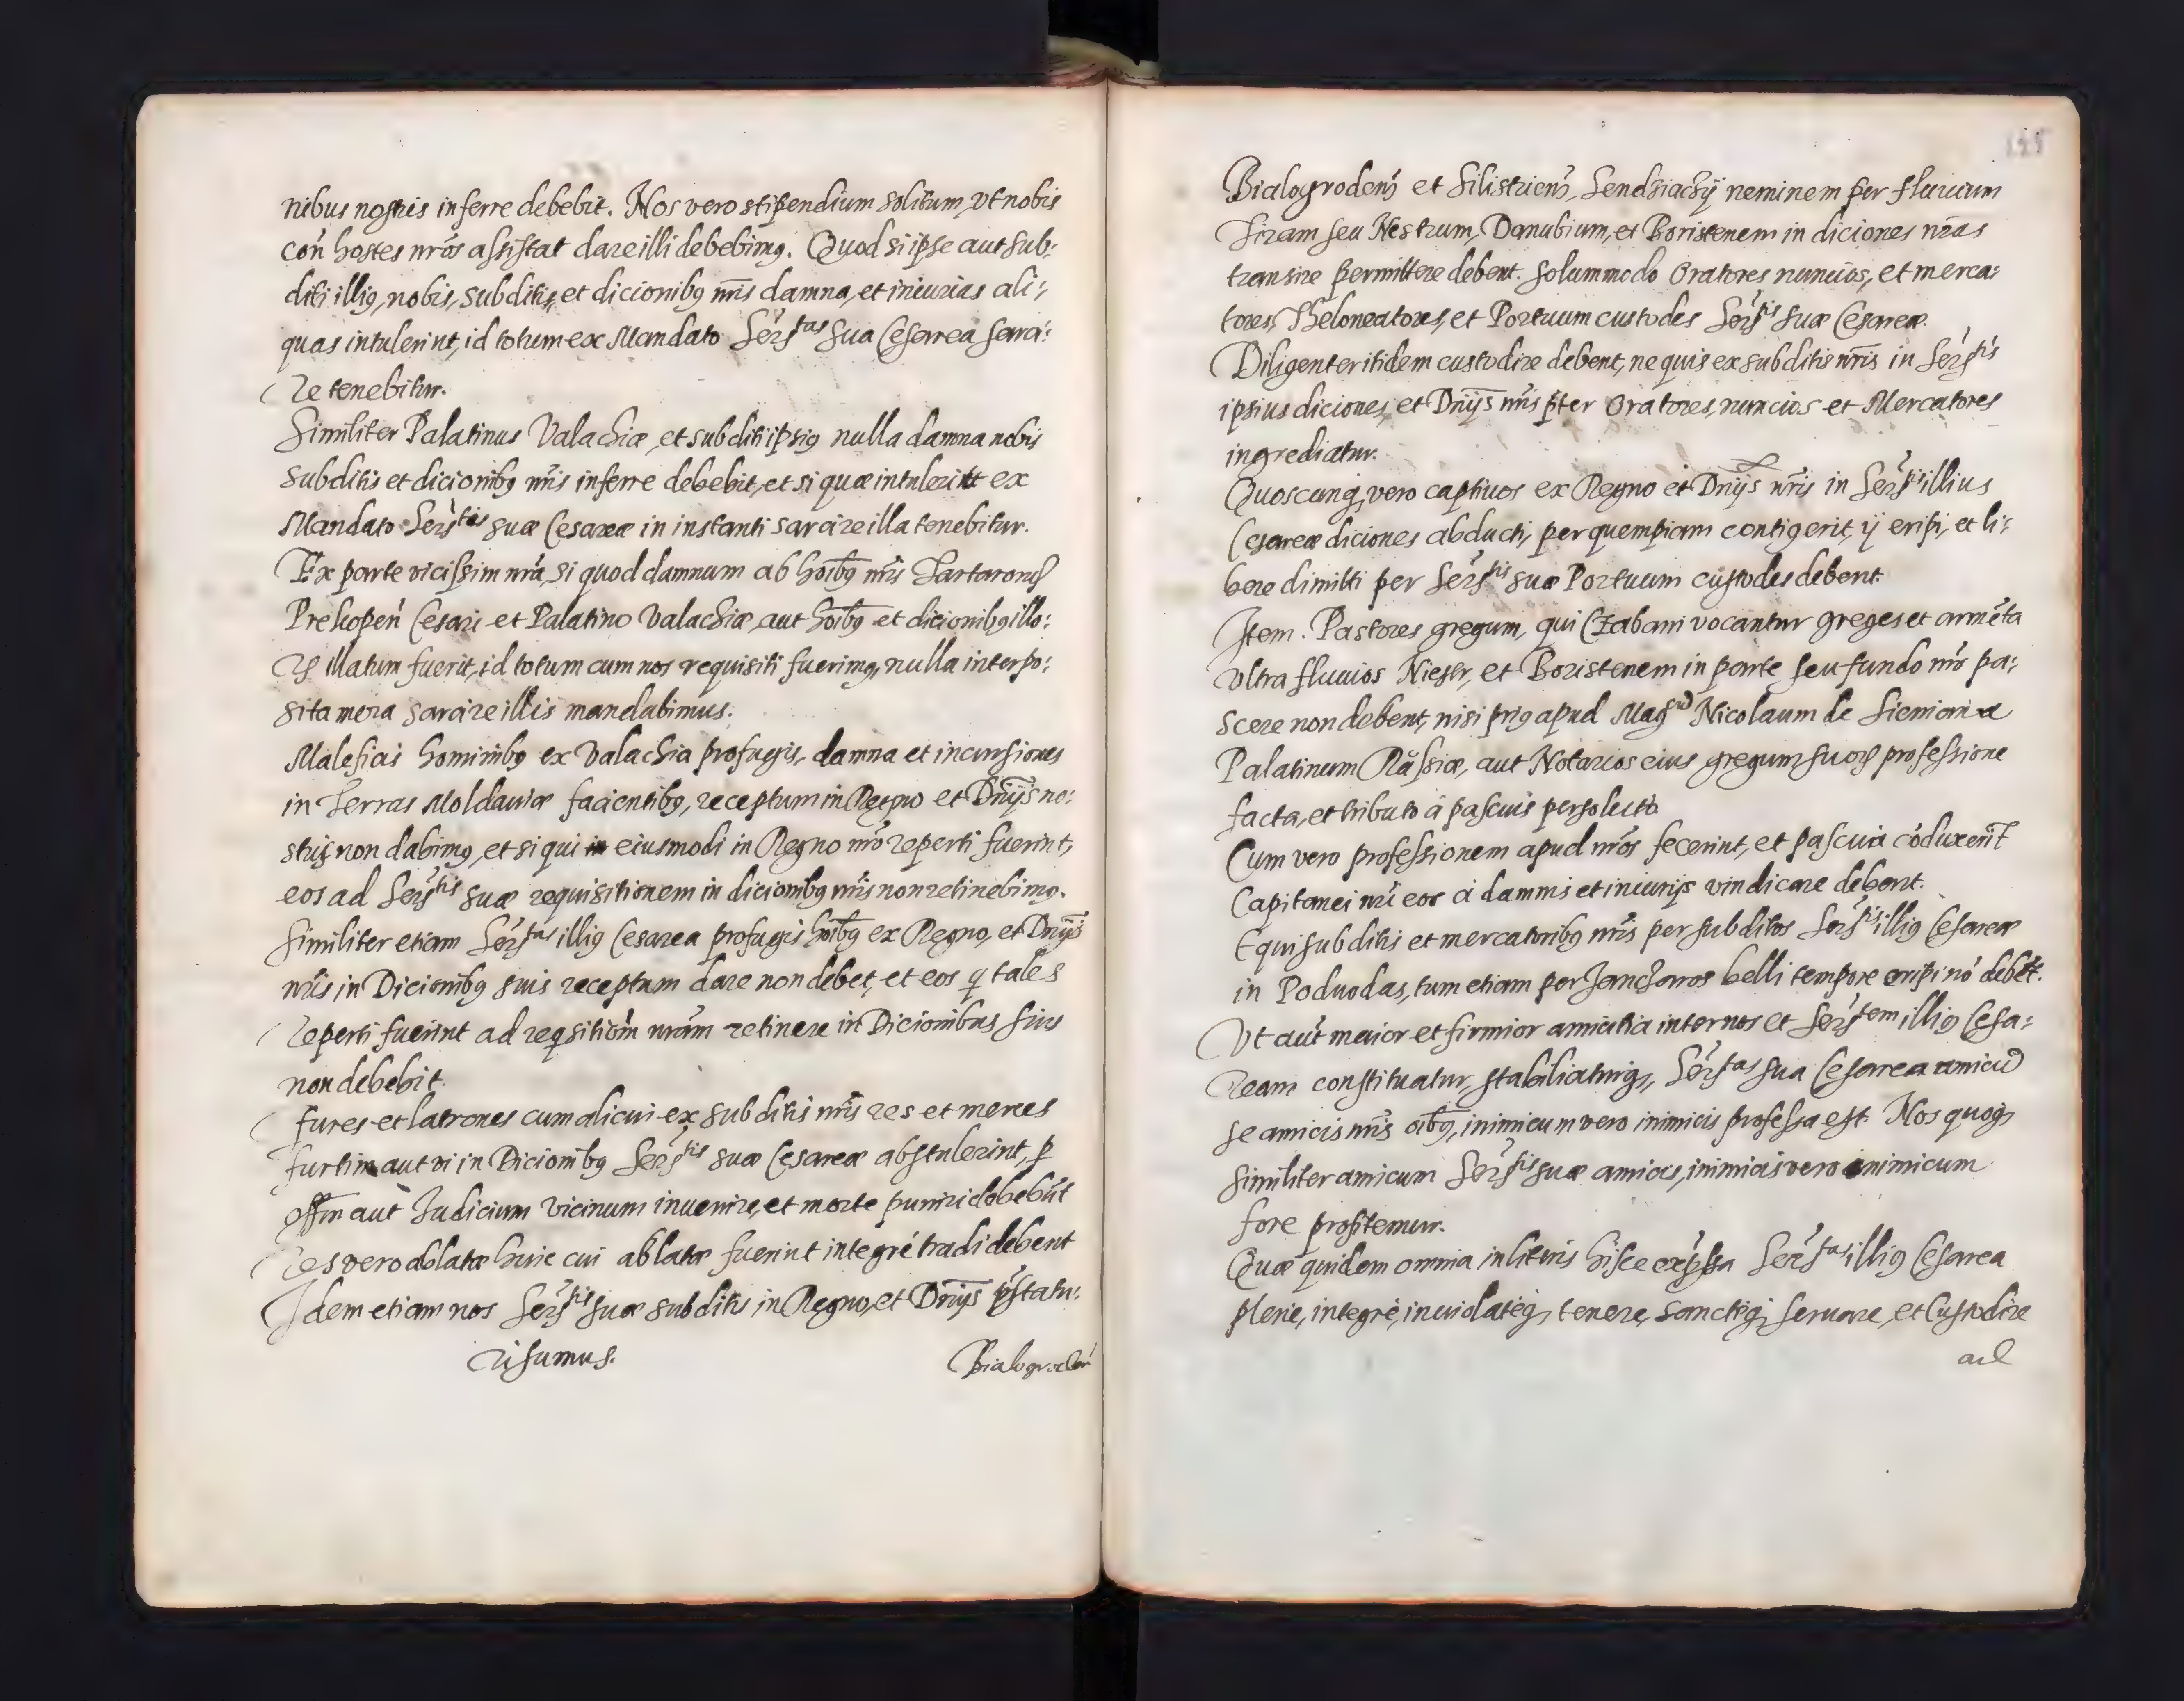 nibus nostris inferre debebit. Nos vero stipendium solitum, vt nobis
coñ hostes nr̃os assistat dare illi debebimus. Quod si ipse aut sub:
diti illius, nobis, subditis, et dicionibus nr̃is damna, et iniurias ali:
quas intulerint, id totum ex Mandato Sers^tas sua Cesarea sarci:
re tenebitur.
Similiter Palatinus Valachiæ, et subditi ipsius nulla damna nobis
subditis et dicionibus nr̃is inferre debebit, et si quæ intulerint ex
Mandato Sers^tis suæ Cesareæ in instanti sarcire illa tenebitur.
Ex parte vicissim nr̃a, si quod damnum ab hoĩbus nr̃is Tartaroruȝ
Prekopeñ Cesari et Palatino Valachiæ, aut hoĩbus et dicionibus illo:
ruȝ illatum fuerit, id totum cum nos requisiti fuerimus, nulla interpo:
sita mora sarcire illis mandabimus.
Maleficis hominibus ex Valachia profugis, damna et incursiones
in Terras Moldaviæ facientibus, receptum in Regno et Dnĩjs no:
stris non dabimus, et si qui eiusmodi in Regno nr̃o reperti fuerint,
eos ad Sers^tis suæ requisitionem in dicionibus nr̃is non retinebimus.
Similiter etiam Sers^tas illius Cesarea profugis hoĩbus ex Regno, et Dnĩjs
nr̃is in Dicionibus suis receptum dare non debet, et eos q tales
reperti fuerint ad reqsitiom̃ nrãm retinere in Dicionibus suis
non debebit.
Fures et latrones cum alicui ex subditis nr̃is res et merces
furtim aut vi in Dicionibus Sers^tis suæ Cesareæ abstulerint, p
offm̃ aut Judicium vicinum inuenire, et morte puniri debebũt
res vero ablatæ huic cui ablatæ fuerint integré tradi debent
Idem etiam nos Sers^tis suæ subditis in Regno, et Dnĩjs p̃statu:
ri sumus.
Bialogrodeñ
Bialogrodeñ et Silistrieñ, Sendziachij neminem per fluuium
Tiram seu Nestrum, Danubium, et Boristenem in diciones nr̃as
transire permittere debent. Solummodo Oratores nuncios, et merca:
tores, Theloneatores, et Portuum custodes Sers^tis suæ Cesareæ.
Diligenter itidem custodire debent, ne quis ex subditis nr̃is in Sers^tis
ipsius diciones, et Dnĩjs nr̃is p̃ter Oratores, nuncios et Mercatores
ingrediatur.
Quoscunq, vero captiuos ex Regno et Dnĩjs nr̃is in Sers^tis illius
Cesareæ diciones abducti, per quempiam contigerit, ij eripi, et li:
bere dimitti per Sers^tis suæ Portuum custodes debent.
Item. Pastores gregum, qui Czabani vocantur greges et armẽta
vltra fluuios Niestr, et Boristenem in parte seu fundo nr̃o pa:
scere non debent, nisi prius apud Mag^cũ Nicolaum de Sieniawa
Palatinum Russiæ, aut Notarios eius gregum suoruȝ professione
facta, et tributo á pascuis persoluto.
Cum vero professionem apud nr̃os fecerint, et pascuia cõduxerint
Capitanei nr̃i eos á damnis et iniurijs vindicare debent.
Equi subditis et mercatoribus nr̃is per subditos Sers^tis illius Cesareæ
in Poduodas, tum etiam per Janczaros belli tempore eripi nõ debẽt.
Vt aut̃ maior et firmior amicitia inter nos et Sers^tem illius Cesa:
ream constituatur, stabiliaturq, Sers^tas sua Cesarea amicũ
se amicis nr̃is oĩbus, inimicum vero inimicis professa est. Nos quoq,
similiter amicum Sers^tis suæ amicis, inimicis vero inimicum
fore profitemur.
Quæ quidem omnia in literis hisce exp̃ssa Sers^tas illius Cesarea
plene, integré, inuiolatéq, tenere, sanctéq, seruare, et custodire
ad